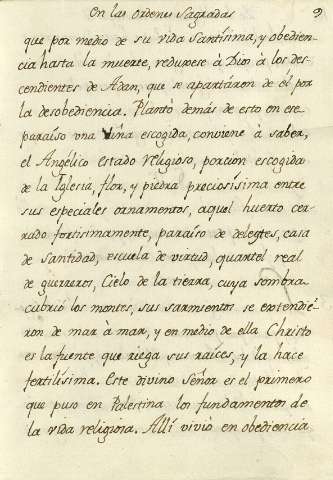 En las Ordenes Sagradas 9
que por medio de su vida Santísima, y obedien-
cia hasta la muerte, reduxese à Dios à los des-
cendientes de Adan, que se apartáron de él por
la desobediencia. Plantò demás de esto en ese
paraíso vna viña escogida, conviene à saber,
el Angélico estado religioso, porcion escogida
de la Iglesia, flor, y piedra preciosísima entre
sus especiales ornamentos, aquel huerto cer-
rado fortísimamente, paraíso de deleytes, casa
de santidad, escuela de virtud, quartel real
de guerreros, Cielo de la tierra, cuya sombra
cubrió los montes, sus sarmientos se extendié-
ron de mar à mar, y en medio de ella Christo
es la fuente que riega sus raíces, y la hace
fertilísima. Este divino Señor es el primero
que puso en Palestina los fundamentos de
la vida religiosa. Allí vivió en obediencia